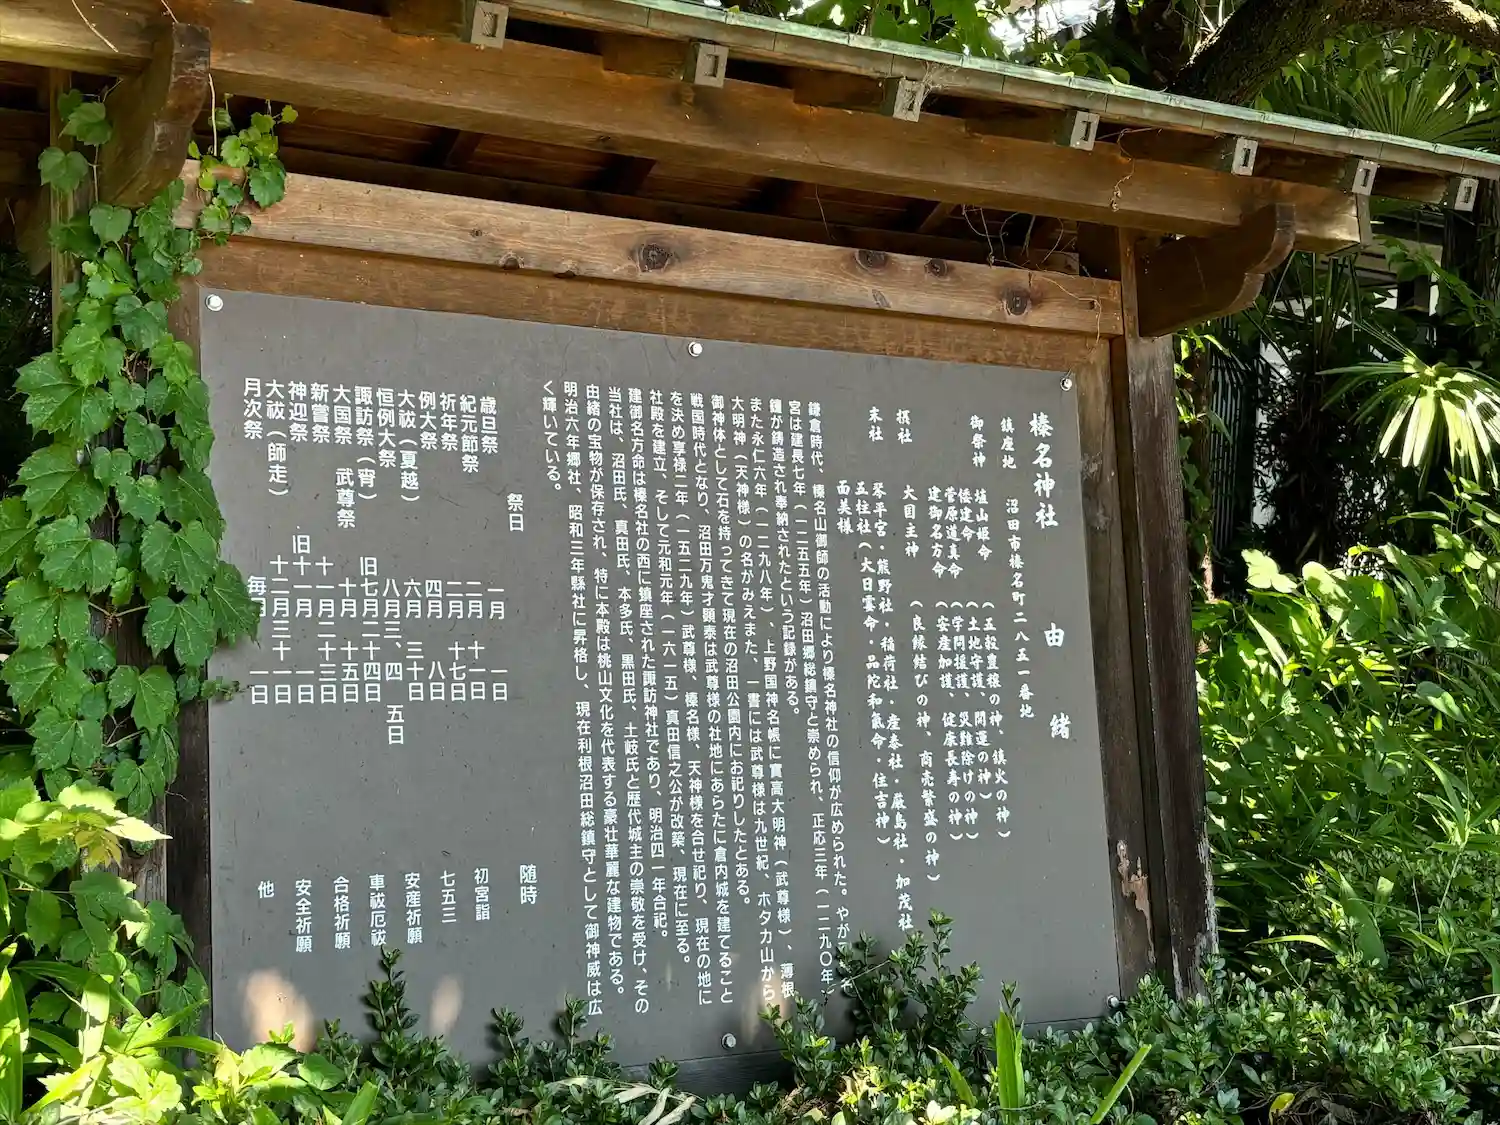 榛名神社　由緒
鎮座地　沼田市榛名町二八五一番地
御祭神　埴山姫命　（五穀豊穣の神、鎮火の神）
倭建命　（土地守護、開運の神）
菅原道真命　（学問援護、災難除けの神）
建御名方命　（安産加護、健康長寿の神）
大国主神　（良縁結びの神、商売繁盛の神）
摂社　琴平宮・熊野社・稲荷社・産泰社・厳島社・加茂社
末社　五柱社（大日孁命・品陀和氣命・住吉神）
面美様
鎌倉時代、榛名山御師の活動により榛名神社の信仰が広められた。やが
宮は建長七年（一二五五年）沼田郷総鎮守と崇められ、正応三年（一二九〇年）
鐘が鋳造され奉納されたという記録がある。
また永仁六年（一二九八年）、上野国神名帳に實高大明神（武尊様）、薄根
大明神（天神様）の名がみえまた、一書には武尊様は九世紀、ホタカ山から
御神体として石を持ってきて現在の沼田公園内にお祀りしたとある。
戦国時代となり、沼田万鬼才顕泰は武尊様の社地にあらたに倉内城を建てること
を決め享禄二年（一五二九年）武尊様、榛名様、天神様を合せ祀り、現在の地に
社殿を建立、そして元和元年（一六一五）真田信之公が改築、現在に至る。
建御名方命は榛名社の西に鎮座された諏訪神社であり、明治四一年合祀。
当社は、沼田氏、真田氏、本多氏、黒田氏、土岐氏と歴代城主の崇敬を受け、その
由緒の宝物が保存され、特に本殿は桃山文化を代表する豪壮華麗な建物である。
明治六年郷社、昭和三年縣社に昇格し、現在利根沼田総鎮守として御神威は広
く輝いている。
祭日
歳旦祭　一月　一日
紀元節祭　二月　十一日
祈年祭　二月　十七日
例大祭　四月　八日
大祓（夏越）　六月　三十日
恒例大祭　八月三、四　五日
諏訪祭（宵）　旧七月二十四日
大国祭　武尊祭　十月　十五日
新嘗祭　十一月二十三日
神迎祭　旧十一月　一日
大祓（師走）　十二月三十一日
月次祭　毎月　一日
随時
初宮詣
七五三
安産祈願
車祓厄祓
合格祈願
安全祈願
他